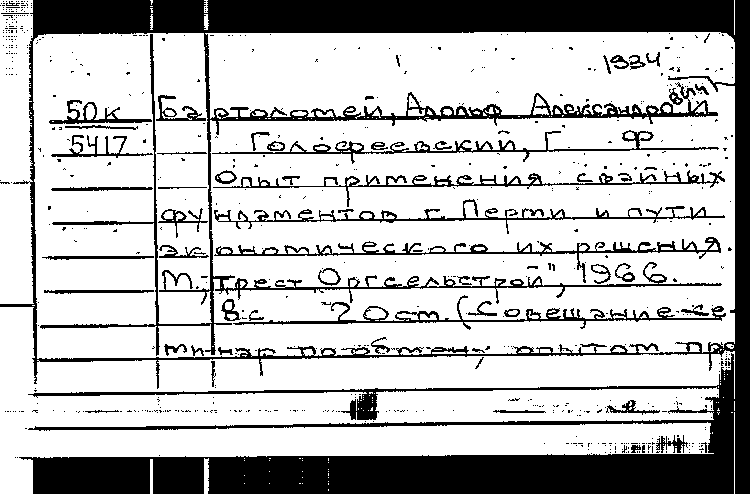 1934
50к Бартоломей, Адольф Александрович и
5417 Голосреевский, Г Ф
Опыт применения свайных
фундаментов г. Перми и пути
экономического их решения.
М., трест „Оргсельстрой", 1966.
8 с. 20 см. (Совещание-се-
минар по обмену опытом про